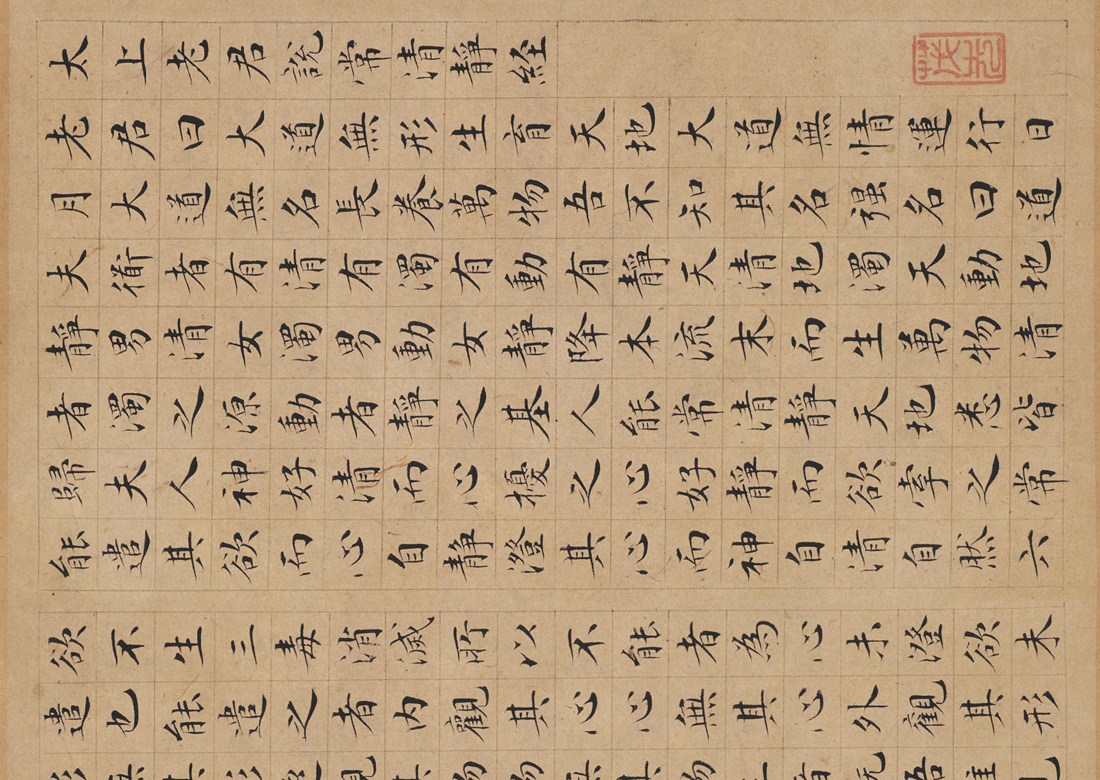 太上老君說常清靜経
老君曰大道無形生育天地大道無情運行日
月大道無名長養萬物吾不知其名强名曰道
夫衜者有清有濁有動有靜天清地濁天動地
靜男清女濁男動女靜降本流末而生萬物清
者濁之源動者靜之基人能常清靜天地悉皆
歸夫人神好清而心擾之心好靜而欲牽之常
能遣其欲而心自靜澄其心而神自清自然六
欲不生三毒消滅所以不能者為心未澄欲未
遣也能遣之者内觀其心心無其心外觀其形